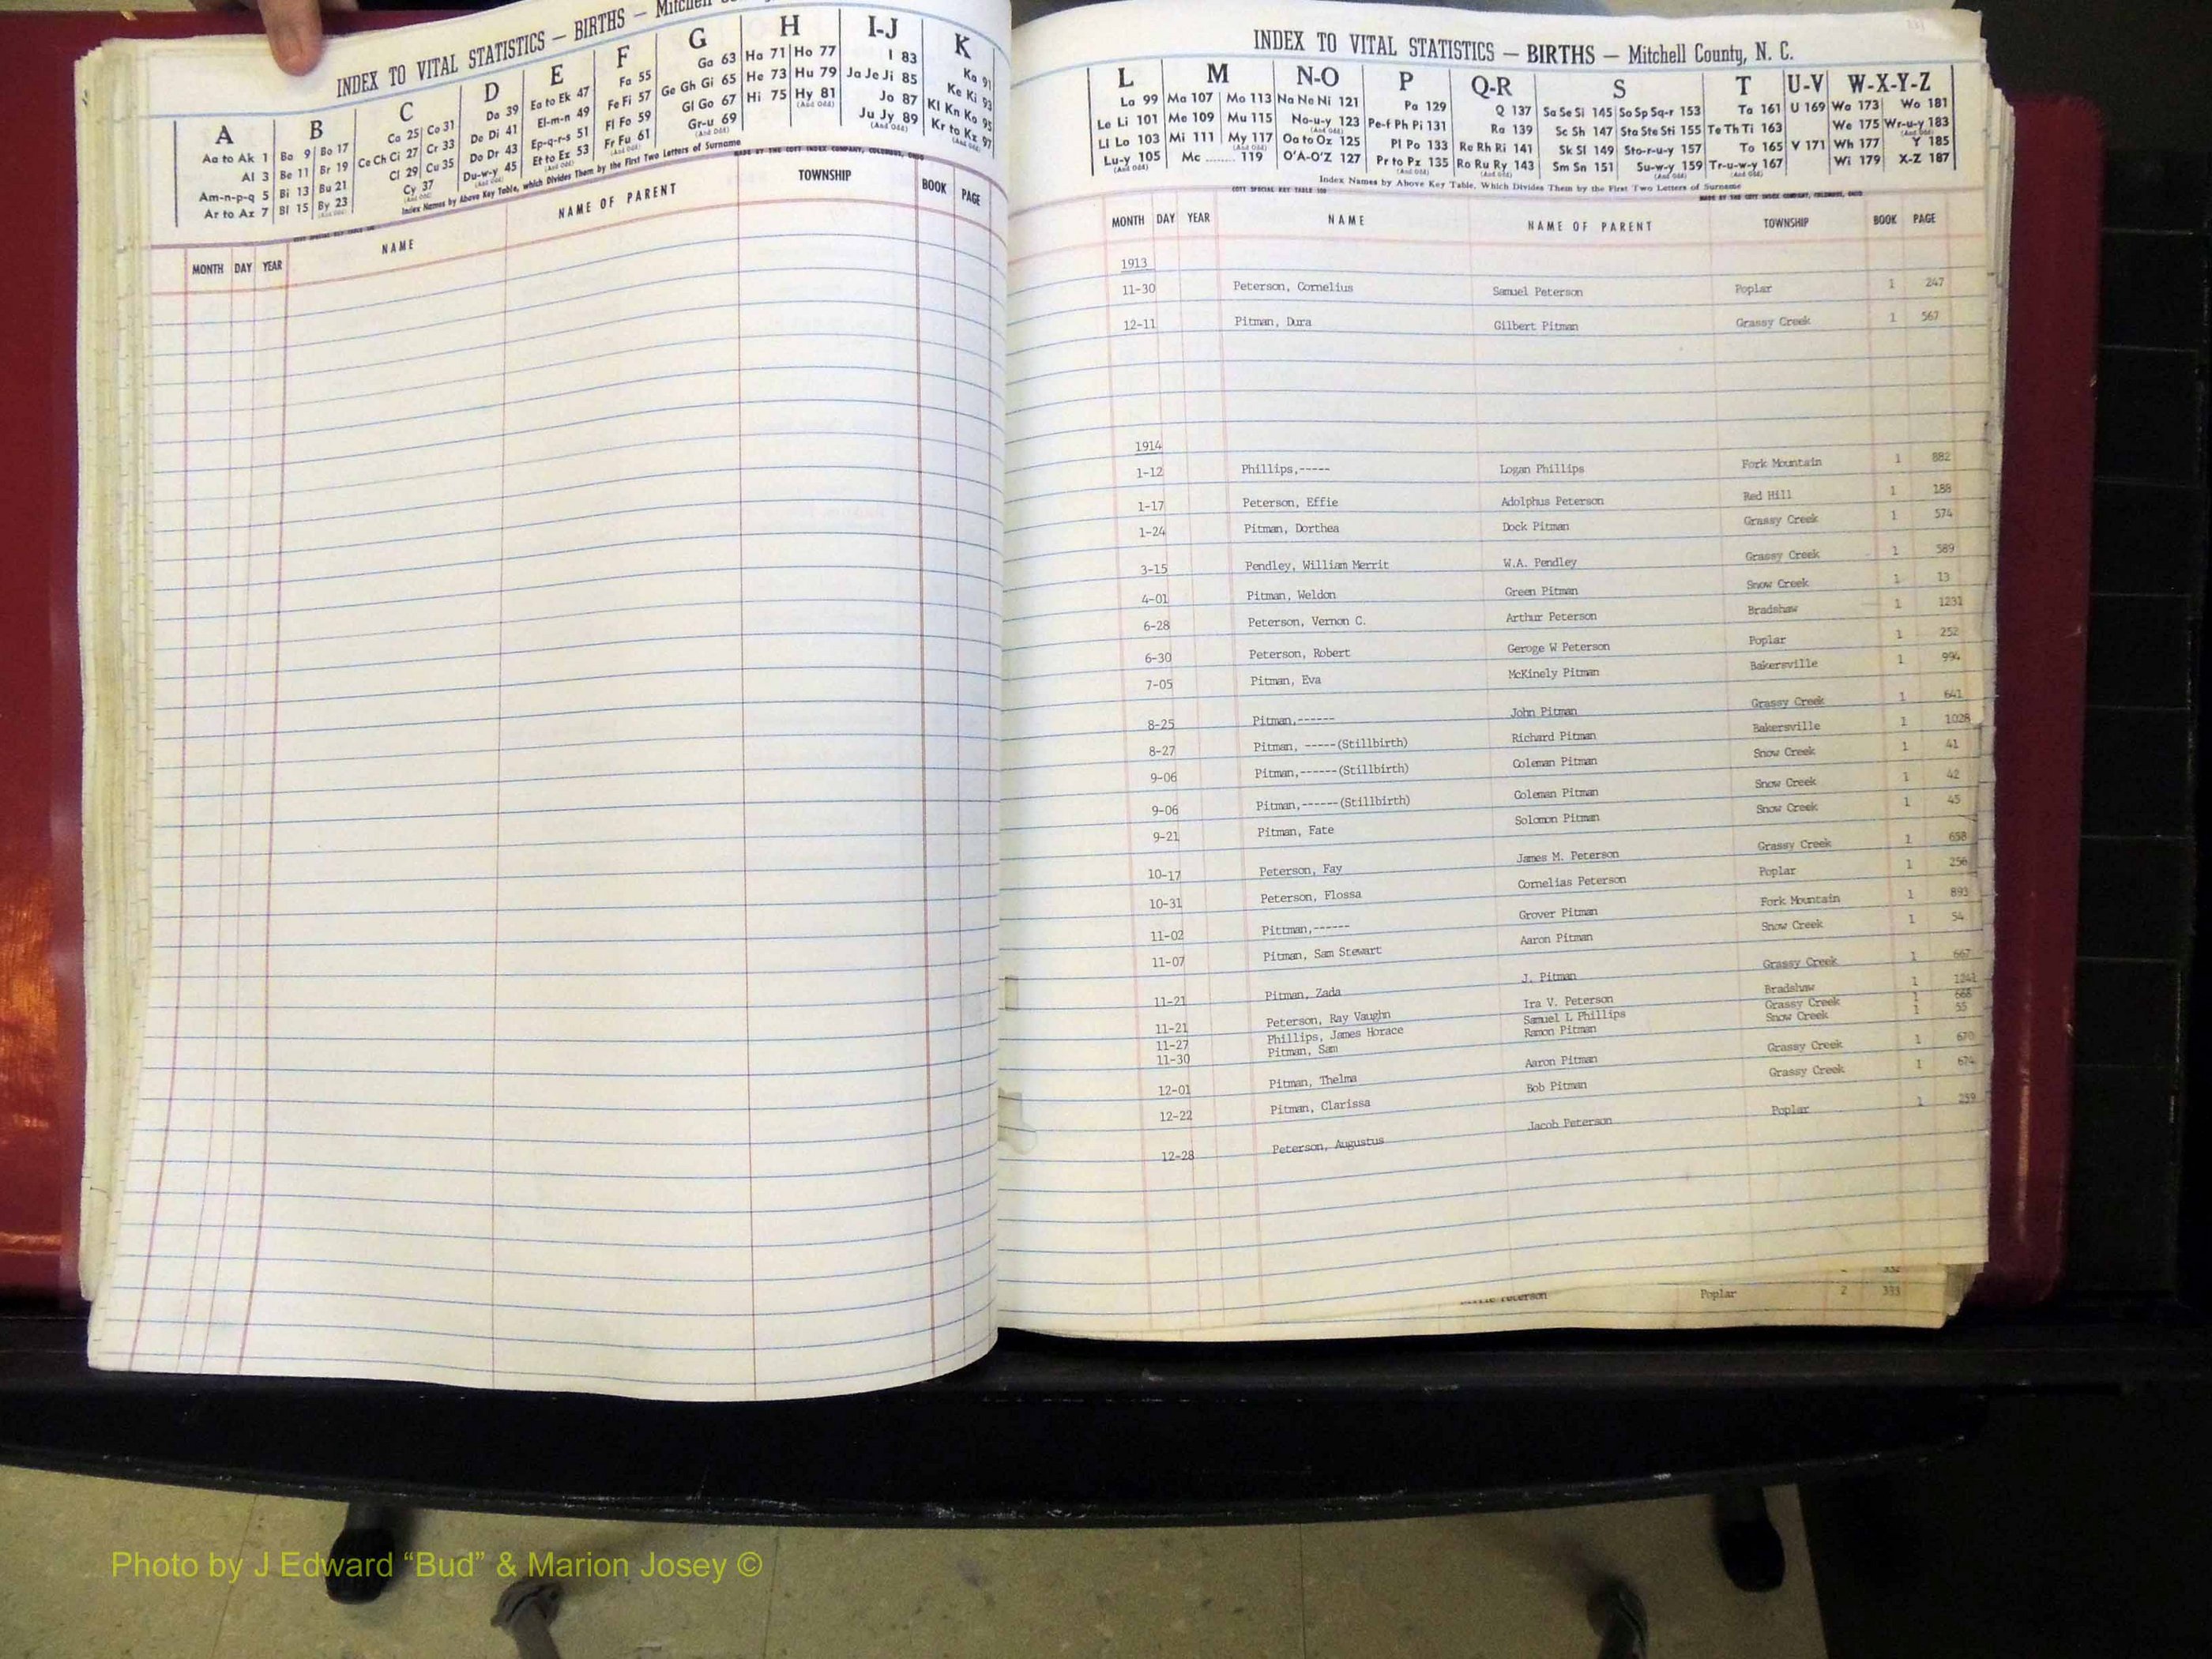 INDEX TO VITAL STATISTICS — BIRTHS — Mitchell
A B C D E F G H I-J K
Aa to Ak 1 Ba 9 Bo 17 Ca 25 Co 31 Da 39 Ea to Ek 47 Fa 55 Ga 63 Ha 71 Ho 77 I 83 Ka 91
Al 3 Be 11 Br 19 Ce Ch Ci 27 Cr 33 De Di 41 El-m-n 49 Fe Fi 57 Ge Gh Gi 65 He 73 Hu 79 Ja Je Ji 85 Ke Ki 93
Am-n-p-q 5 Bi 13 Bu 21 Cl 29 Cu 35 Do Dr 43 Ep-q-r-s 51 Fl Fo 59 Gl Go 67 Hi 75 Hy 81 Jo 87 Kl Kn Ko 95
Ar to Az 7 Bl 15 By 23 Cy 37 Du-w-y 45 Et to Ez 53 Fr Fu 61 Gr-u 69 (And Odd) Ju Jy 89 Kr to Kz 97
Index Names by Above Key Table, which Divides Them by the First Two Letters of Surname
MADE BY THE COTT INDEX COMPANY, COLUMBUS, OHIO
MONTH DAY YEAR NAME NAME OF PARENT TOWNSHIP BOOK PAGE
INDEX TO VITAL STATISTICS — BIRTHS — Mitchell County, N. C.
L M N-O P Q-R S T U-V W-X-Y-Z
La 99 Ma 107 Mo 113 Na Ne Ni 121 Pa 129 Q 137 Sa Se Si 145 So Sp Sq-r 153 Ta 161 U 169 Wa 173 Wo 181
Le Li 101 Me 109 Mu 115 No-u-y 123 Pe-f Ph Pi 131 Ra 139 Sc Sh 147 Sta Ste Sti 155 Te Th Ti 163 We 175 Wr-u-y 183
Ll Lo 103 Mi 111 My 117 Oa to Oz 125 Pl Po 133 Re Rh Ri 141 Sk Sl 149 Sto-r-u-y 157 To 165 V 171 Wh 177 Y 185
Lu-y 105 Mc ........ 119 O'A-O'Z 127 Pr to Pz 135 Ro Ru Ry 143 Sm Sn 151 Su-w-y 159 Tr-u-w-y 167 Wi 179 X-Z 187
Index Names by Above Key Table, Which Divides Them by the First Two Letters of Surname
COTT SPECIAL KEY TABLE
MADE BY THE COTT INDEX COMPANY, COLUMBUS, OHIO
MONTH DAY YEAR NAME NAME OF PARENT TOWNSHIP BOOK PAGE
1913
11-30 Peterson, Cornelius Samuel Peterson Poplar 1 247
12-11 Pitman, Dura Gilbert Pitman Grassy Creek 1 567
1914
1-12 Phillips,----- Logan Phillips Fork Mountain 1 882
1-17 Peterson, Effie Adolphus Peterson Red Hill 1 188
1-24 Pitman, Dorthea Dock Pitman Grassy Creek 1 574
3-15 Pendley, William Merrit W.A. Pendley Grassy Creek 1 589
4-01 Pitman, Weldon Green Pitman Snow Creek 1 13
6-28 Peterson, Vernon C. Arthur Peterson Bradshaw 1 1231
6-30 Peterson, Robert Geroge W Peterson Poplar 1 252
7-05 Pitman, Eva McKinely Pitman Bakersville 1 994
8-25 Pitman,------ John Pitman Grassy Creek 1 641
8-27 Pitman, -----(Stillbirth) Richard Pitman Bakersville 1 1028
9-06 Pitman,------(Stillbirth) Coleman Pitman Snow Creek 1 41
9-06 Pitman,------(Stillbirth) Coleman Pitman Snow Creek 1 42
9-21 Pitman, Fate Solomon Pitman Snow Creek 1 45
10-17 Peterson, Fay James M. Peterson Grassy Creek 1 658
10-31 Peterson, Flossa Cornelias Peterson Poplar 1 256
11-02 Pittman,------ Grover Pitman Fork Mountain 1 893
11-07 Pitman, Sam Stewart Aaron Pitman Snow Creek 1 54
11-21 Pitman, Zada J. Pitman Grassy Creek 1 667
11-21 Peterson, Ray Vaughn Ira V. Peterson Bradshaw 1 1241
11-27 Phillips, James Horace Samuel L Phillips Grassy Creek 1 668
11-30 Pitman, Sam Ramon Pitman Snow Creek 1 55
12-01 Pitman, Thelma Aaron Pitman Grassy Creek 1 670
12-22 Pitman, Clarissa Bob Pitman Grassy Creek 1 674
12-28 Peterson, Augustus Jacob Peterson Poplar 1 259
Peterson Poplar 2 333
Photo by J Edward “Bud” & Marion Josey ©